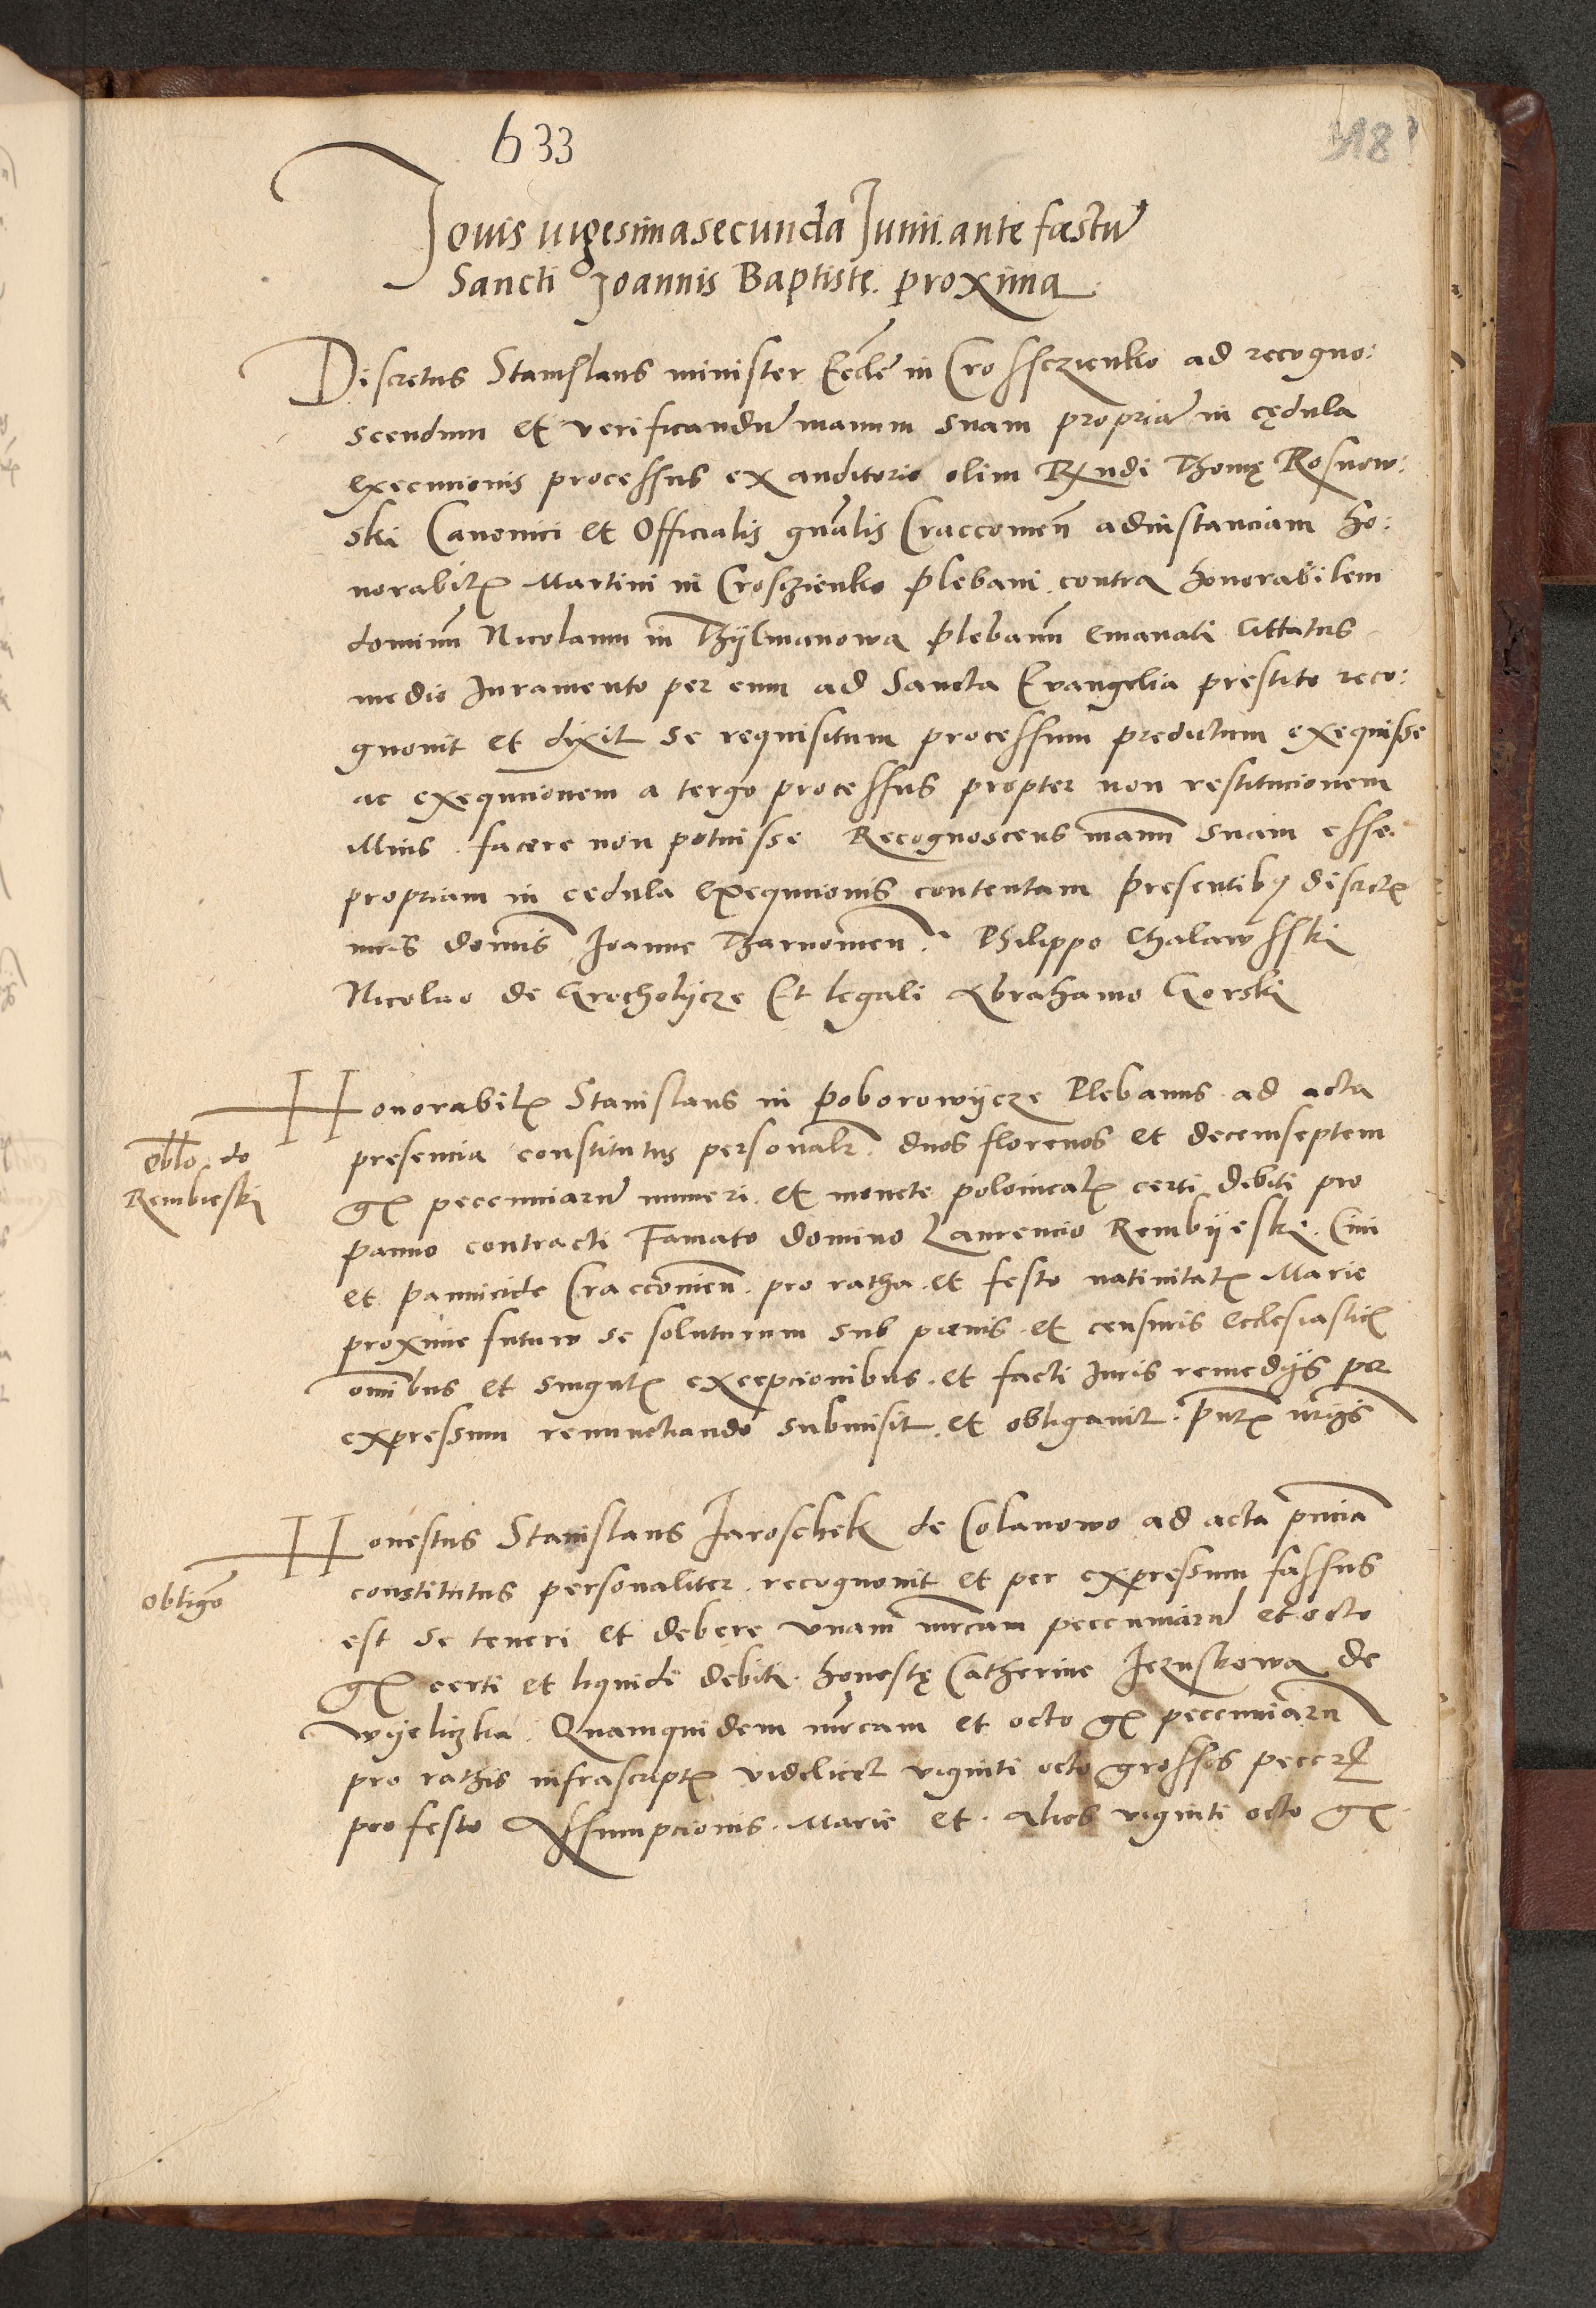 633
318
Jovis vigesimasecunda Junii ante fæstu᷑
Sancti Joannis Baptistę. proxima
Discretus Stanislaus minister Eccle᷑ in Crosszienko ad recogno:
scendum et verificandu᷑ manum suam propria᷑ in cędula
execucionis processus ex auditorio olim Rx̄ndi Thomę Rosnow:
ski Canonici et Officialis gn̄alis Craccovien̄ adinstanciam ho:
norabil' Martini in Croszienko plebani contra honorabilem
dominū Nicolaum in Thylmanowa plebanū emanati cittatus
medio Juramento per eum ad Sancta Evangelia prestito reco:
gnovit et dixit se requisitum processum predictum exequisse
ac exequucionem a tergo processus propter non restitucionem
illius facere non potuisse Recognoscens manū suam esse
propriam in cedula exequucionis contentam presentib9 discret'
viris dominis Joanne Tharnovien̄. Philippo Chalawsski
Nicolao de Grocholycze Et legali Abrahamo Gorski
Honorabil' Stanislaus in Poborowycze Plebanus ad acta
presencia constitutus personalr̄. duos florenos et decemseptem
gr̄ peccuniaru᷑ numeri et monete polonicał certi debiti pro
panno contracti Famato domino Laurencio Rembyeski. Civi
et pannicide Craccovien̄ pro ratha et festo nativitat' Marie
proxime futuro se soluturum sub pœnis et censuris ecclesiastic'
om̄ibus et singul' excepcionibus et facti Juris remedys per
expressum renunctiando submisit et obligavit. pn̄t' n̄rys
Obl̄o do
Rembieski
Honestus Stanislaus Jaroschek de Colanowo ad acta pn̄cia
constitutus personaliter recognovit et per expressum fassus
est se teneri et debere vnam mr̄cam peccuniaru᷑ et octo
gr̄ certi et liquidi debiti honestę Catherine Jezuskowa de
wyelizka. Quamquidem mr̄cam et octo gr̄ peccuniaru᷑
pro rathis infrascript' videlicet viginti octo grossos peccr̄
pro festo Assumpcionis Marie et Alios viginti octo gr̄
obligō